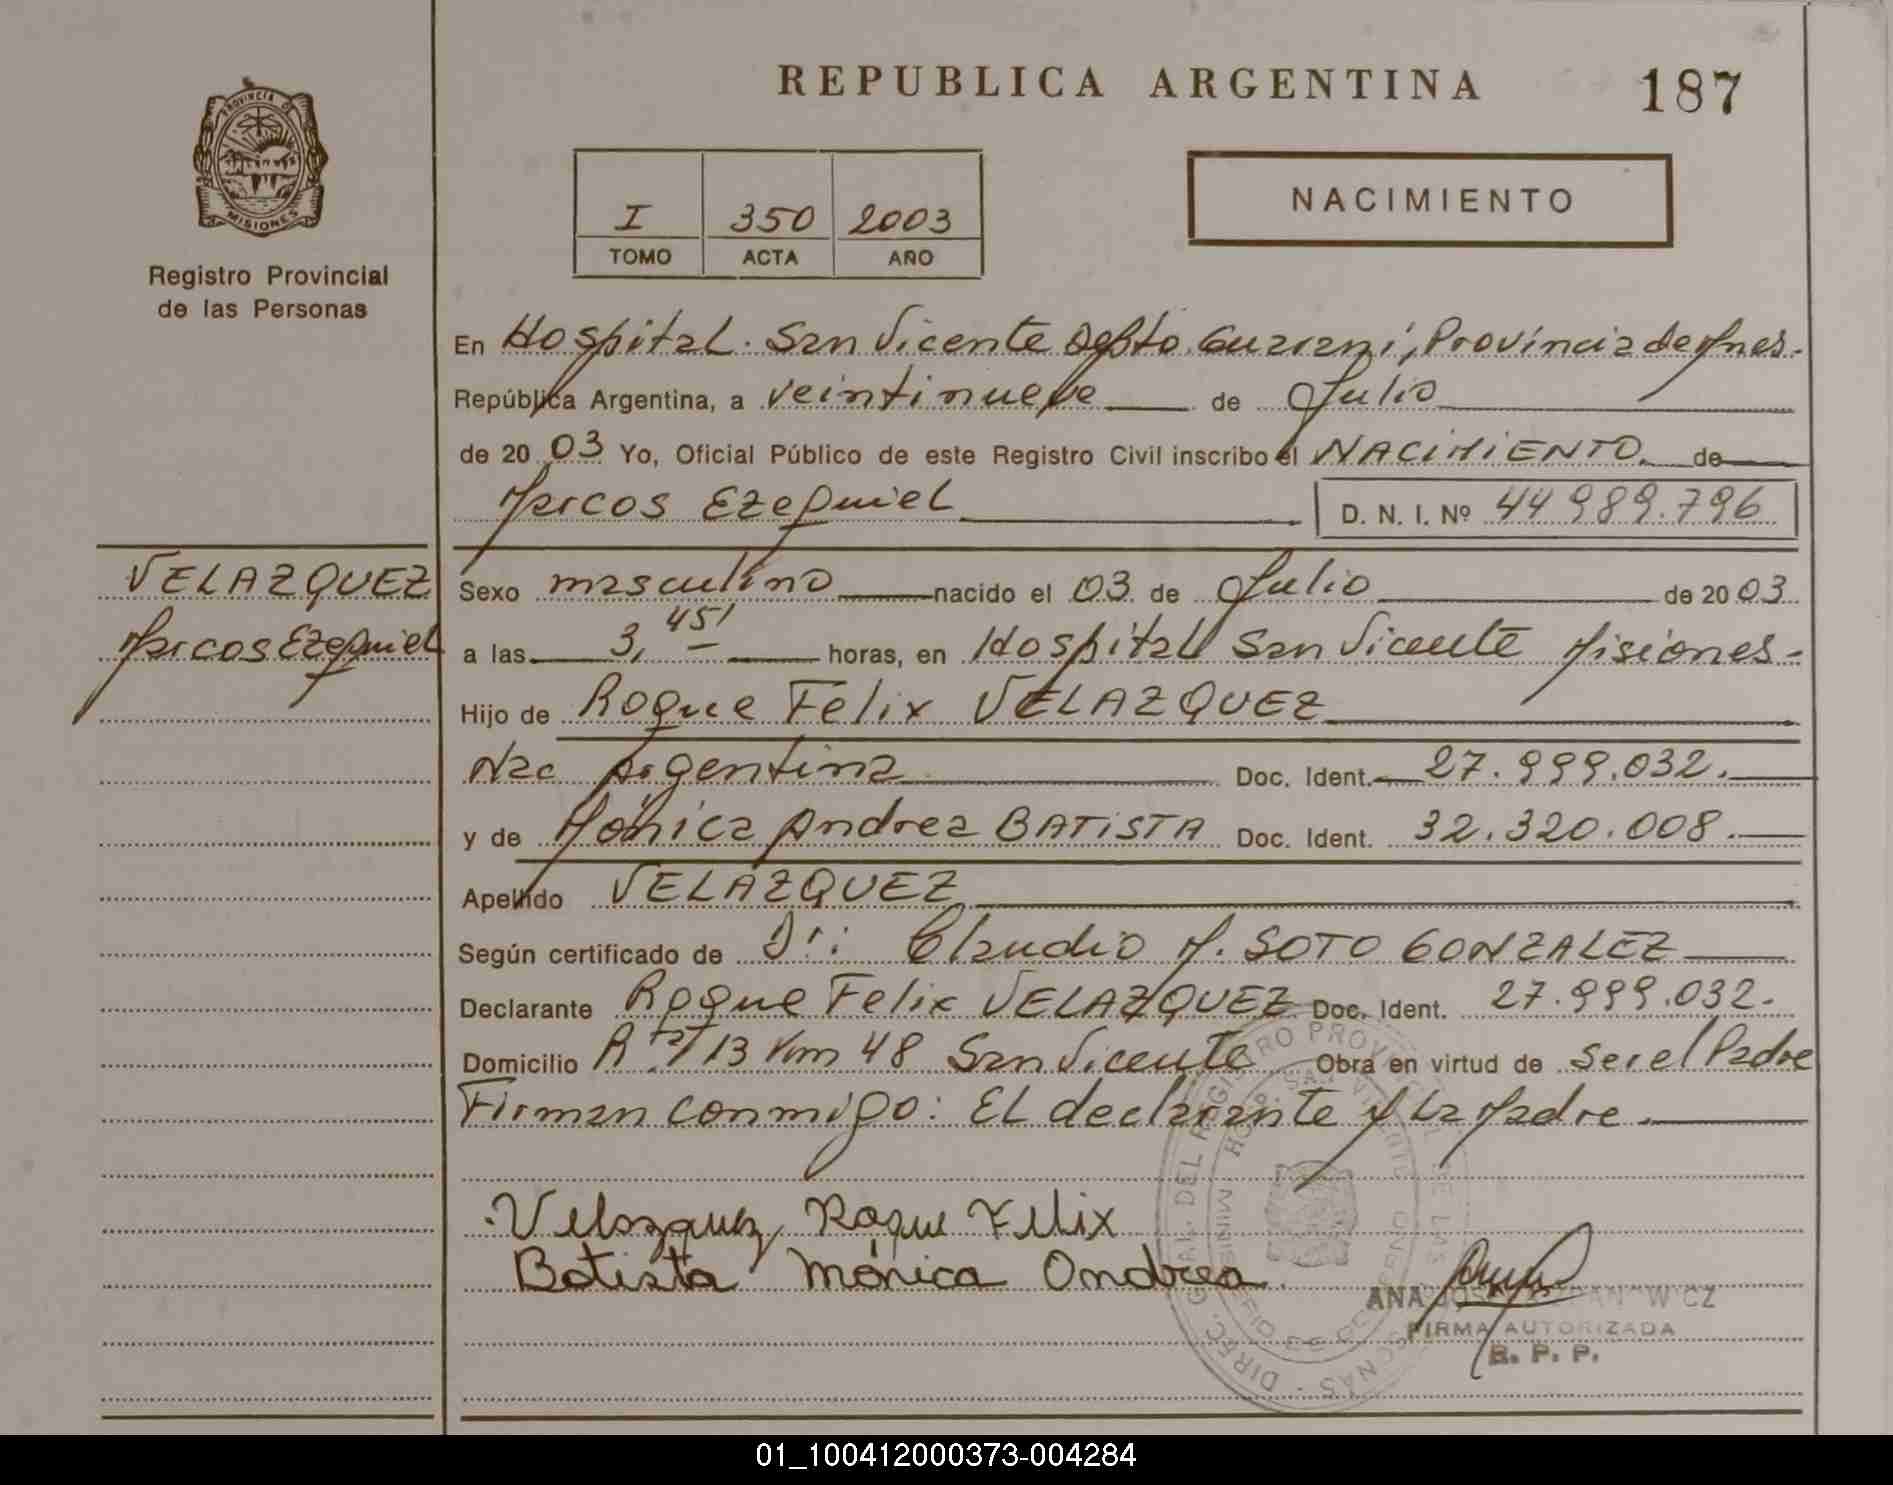 REPUBLICA ARGENTINA
187
PROVINCIA DE
MISIONES
Registro Provincial
de las Personas
I 350 2003
TOMO ACTA AÑO
NACIMIENTO
En Hospital San Vicente Depto. Guaraní, Provincia de Mnes.
República Argentina, a veintinueve de Julio
de 2003 Yo, Oficial Público de este Registro Civil inscribo el NACIMIENTO de
Marcos Ezequiel D. N. I. Nº 44 989.796
VELAZQUEZ
Marcos Ezequiel
Sexo masculino nacido el 03 de Julio de 2003
a las 3,45' horas, en Hospital San Vicente Misiones-
Hijo de Roque Felix VELAZQUEZ
Nac Argentina Doc. Ident. 27.999.032.
y de Mónica Andrea BATISTA Doc. Ident. 32.320.008.
Apellido VELAZQUEZ
Según certificado de Dr: Claudio M. SOTO GONZALEZ
Declarante Roque Felix VELAZQUEZ Doc. Ident. 27.999.032.
Domicilio R 13 Km 48 San Vicente Obra en virtud de ser el Padre
Firman conmigo: El declarante y la Madre.
Velazquez Roque Felix
Batista Mónica Andrea
ANA
FIRMA AUTORIZADA
R. P. P.
DIREC. GRAL. DEL REGISTRO PROVINCIAL DE LAS PERSONAS
01_100412000373-004284